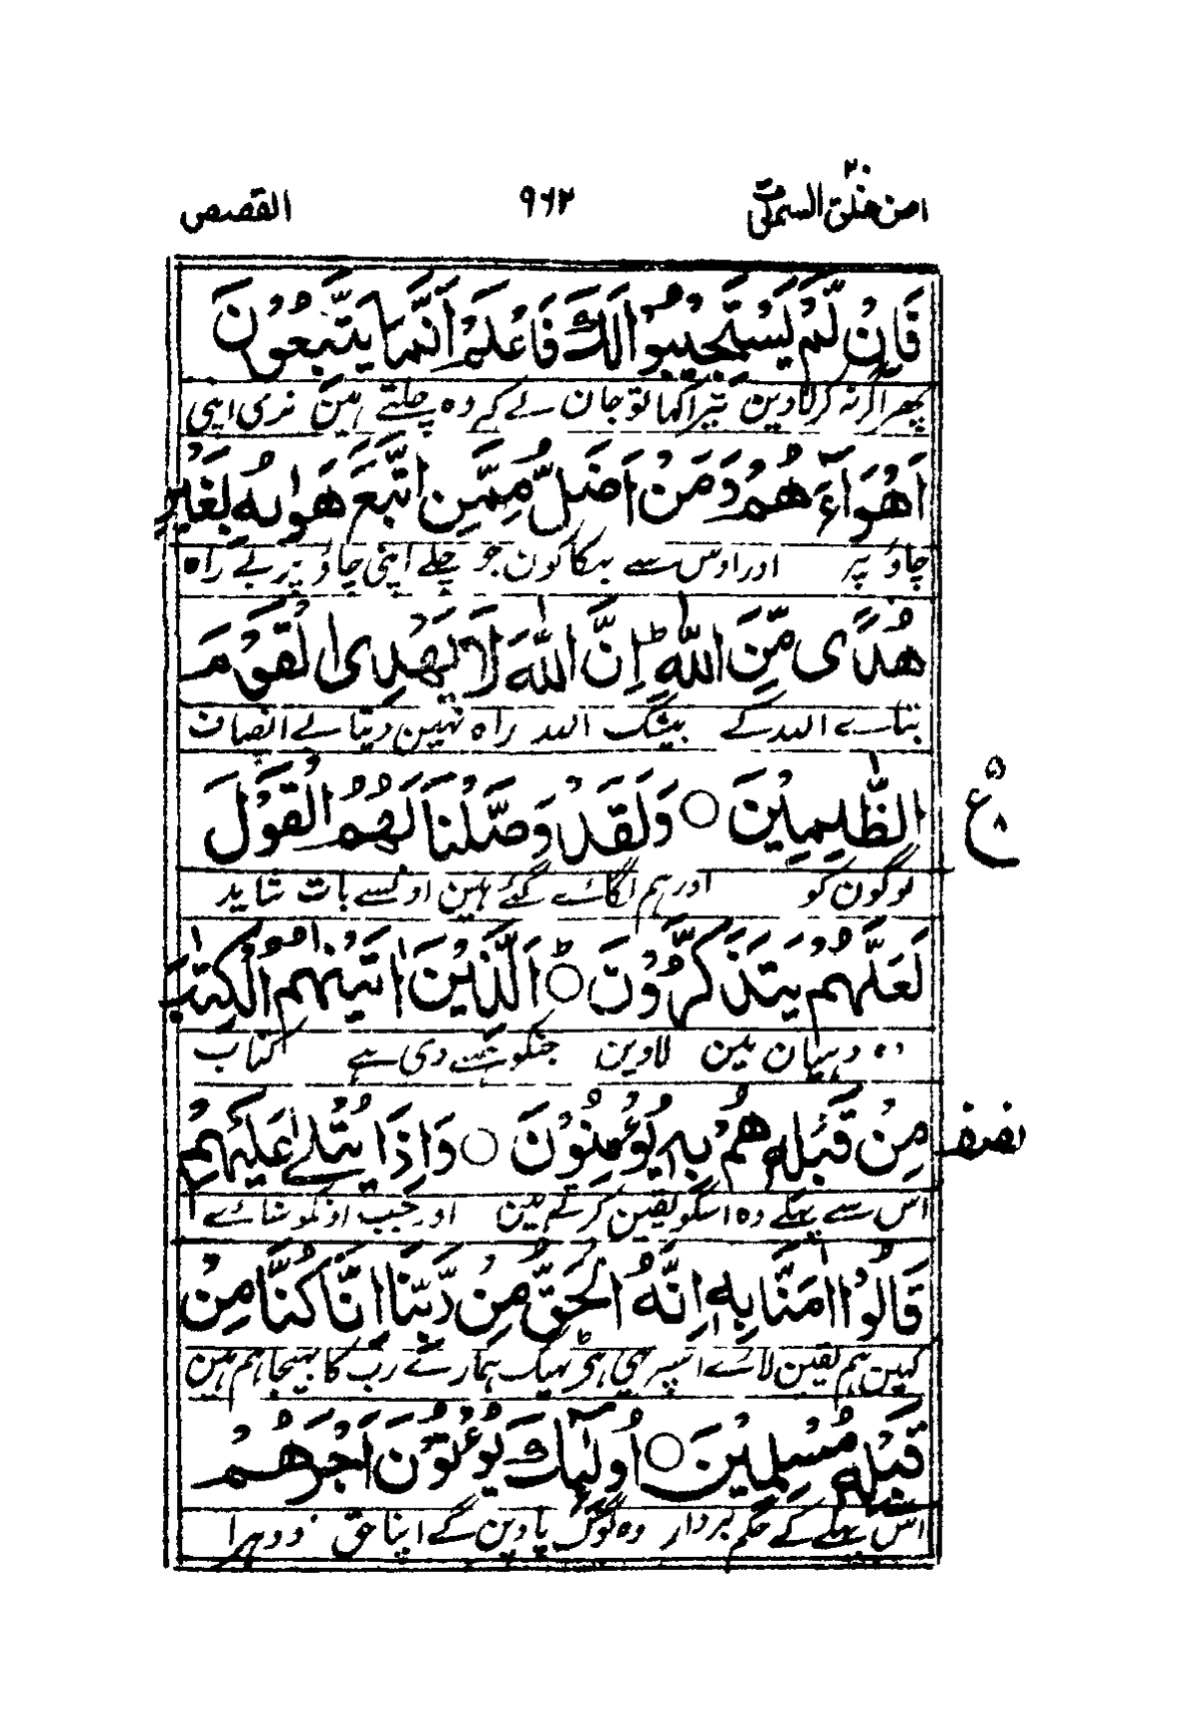 امن خلق السمٰوٰت ۲۰ ۹۶۲ القصص
فَاِنْ لَّمْ يَسْتَجِيْبُوْا لَكَ فَاعْلَمْ اَنَّمَا يَتَّبِعُوْنَ
پھر اگر نہ کر لاوین تیرا کہا تو جان لے کہ وہ چلتے ہین نری اپنی
اَهْوَآءَهُمْ وَمَنْ اَضَلُّ مِمَّنِ اتَّبَعَ هَوٰىهُ بِغَيْرِ
چاؤ پر اور اوس سے بہکا کون جو چلے اپنی چاؤ پر بے راہ
هُدًى مِّنَ اللّٰهِ ؕ اِنَّ اللّٰهَ لَا يَهْدِى الْقَوْمَ
بتائے اللہ کے بیشک اللہ راہ نہین دیتا بے انصاف
الظّٰلِمِيْنَ ○ وَلَقَدْ وَصَّلْنَا لَهُمُ الْقَوْلَ
۵ ع ۸
لوگون کو اور ہم لگائے گئے ہین اونسے بات شاید
لَعَلَّهُمْ يَتَذَكَّرُوْنَ ○ؕ اَلَّذِيْنَ اٰتَيْنٰهُمُ الْكِتٰبَ
وہ دہیان مین لاوین جنکو ہمنے دی ہے کتاب
مِنْ قَبْلِهٖ هُمْ بِهٖ يُؤْمِنُوْنَ ○ وَاِذَا يُتْلٰى عَلَيْهِمْ
نصف
اس سے پہلے وہ اسکو یقین کرتے ہین اور جب اونکو سنائے
قَالُوْٓا اٰمَنَّا بِهٖٓ اِنَّهُ الْحَقُّ مِنْ رَّبِّنَآ اِنَّا كُنَّا مِنْ
کہین ہم یقین لائے اسپر یہی ہی ٹھیک ہمارے رب کا بھیجا ہم ہین
قَبْلِهٖ مُسْلِمِيْنَ ○ اُولٰٓئِكَ يُؤْتَوْنَ اَجْرَهُمْ
اس پہلے کے حکم بردار وہ لوگ پاوین گے اپنا حق دوہرا